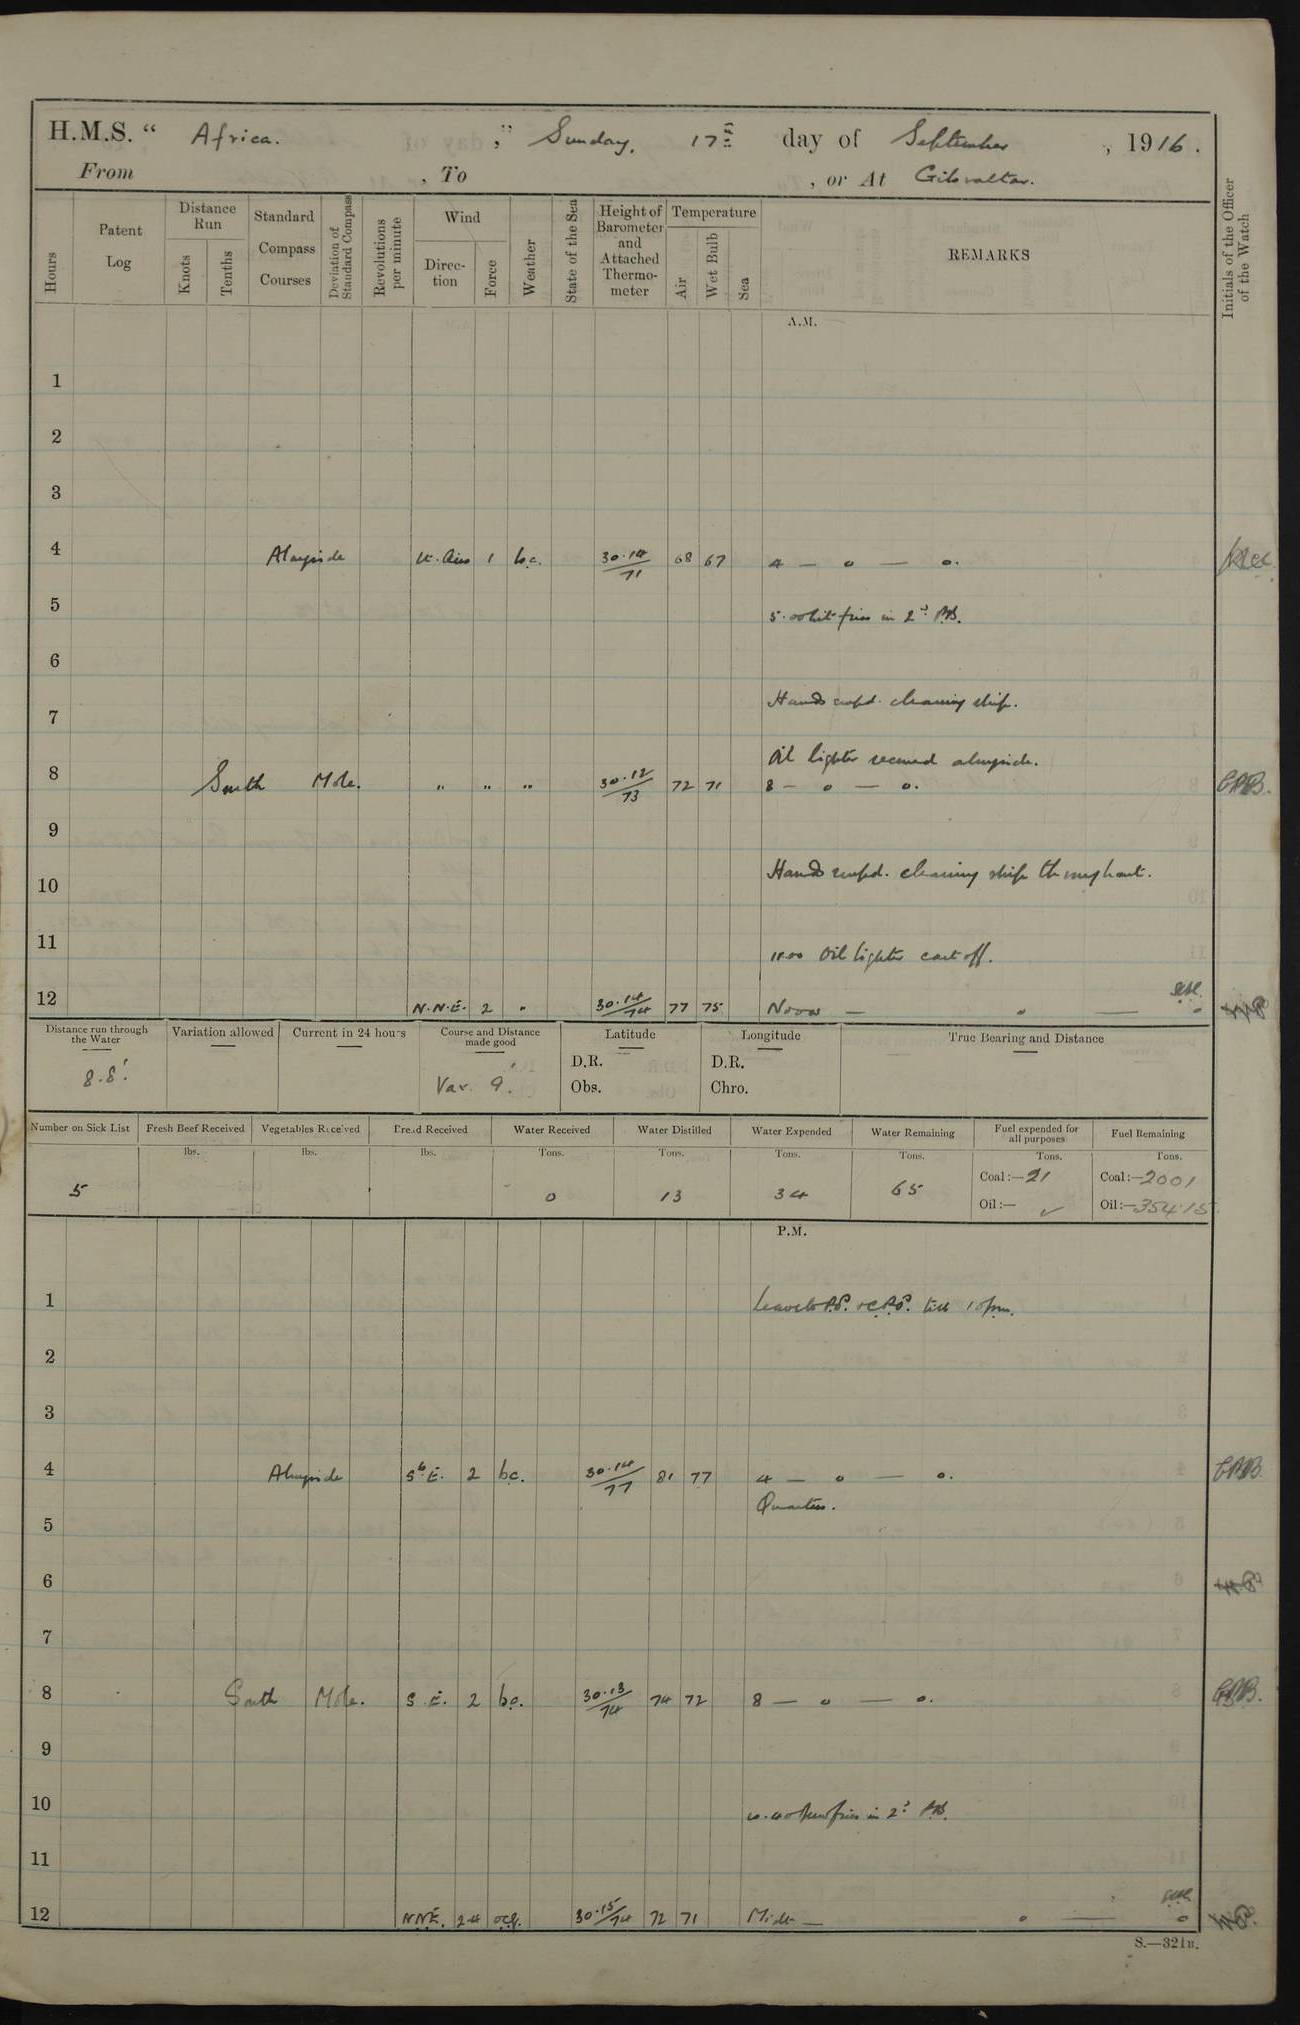 H.M.S. " Africa. ," Sunday, 17th day of September, 1916.
From , To , or At Gibraltar.
Hours
Patent Log
Distance Run
Knots
Tenths
Standard Compass Courses
Deviation of Standard Compass
Revolutions per minute
Wind
Direction
Force
Weather
State of the Sea
Height of Barometer and Attached Thermometer
Temperature
Air
Wet Bulb
Sea
REMARKS
Initials of the Officer of the Watch
A.M.
1
2
3
4 Alongside Lt. Airs 1 b.c. 30.14/71 68 67 4 — o — o.
5 5.00 lit fires in 2nd P.B.
6
Hands empd. cleaning ship.
7
Oil lighter secured alongside.
8 South Mole. " " " 30.12/73 72 71 8 — o — o.
9
Hands empd. cleaning ship throughout.
10
11 11.00 Oil lighter cast off.
12 N.N.E. 2 " 30.14/74 77 75 Noon — o — o
Distance run through the Water
8.8'.
Variation allowed
Current in 24 hours
Course and Distance made good
Var. 9'.
Latitude
D.R.
Obs.
Longitude
D.R.
Chro.
True Bearing and Distance
Number on Sick List Fresh Beef Received Vegetables Received Bread Received Water Received Water Distilled Water Expended Water Remaining Fuel expended for all purposes Fuel Remaining
lbs. lbs. lbs. Tons. Tons. Tons. Tons. Tons. Tons.
5 0 13 34 65 Coal:—21 Coal:—2001
Oil:— ✓ Oil:—354.15
P.M.
1 Leave to P.O. & C.P.O. till 10 pm.
2
3
4 Alongside SbE. 2 bc. 30.14/77 81 77 4 — o — o.
Quarters.
5
6
7
8 South Mole. S.E. 2 bc. 30.13/74 74 72 8 — o — o.
9
10 fires in 2nd P.B.
11
12 NNE. 2-4 ocq. 30.15/74 72 71 Midt — o — o
S.—321B.